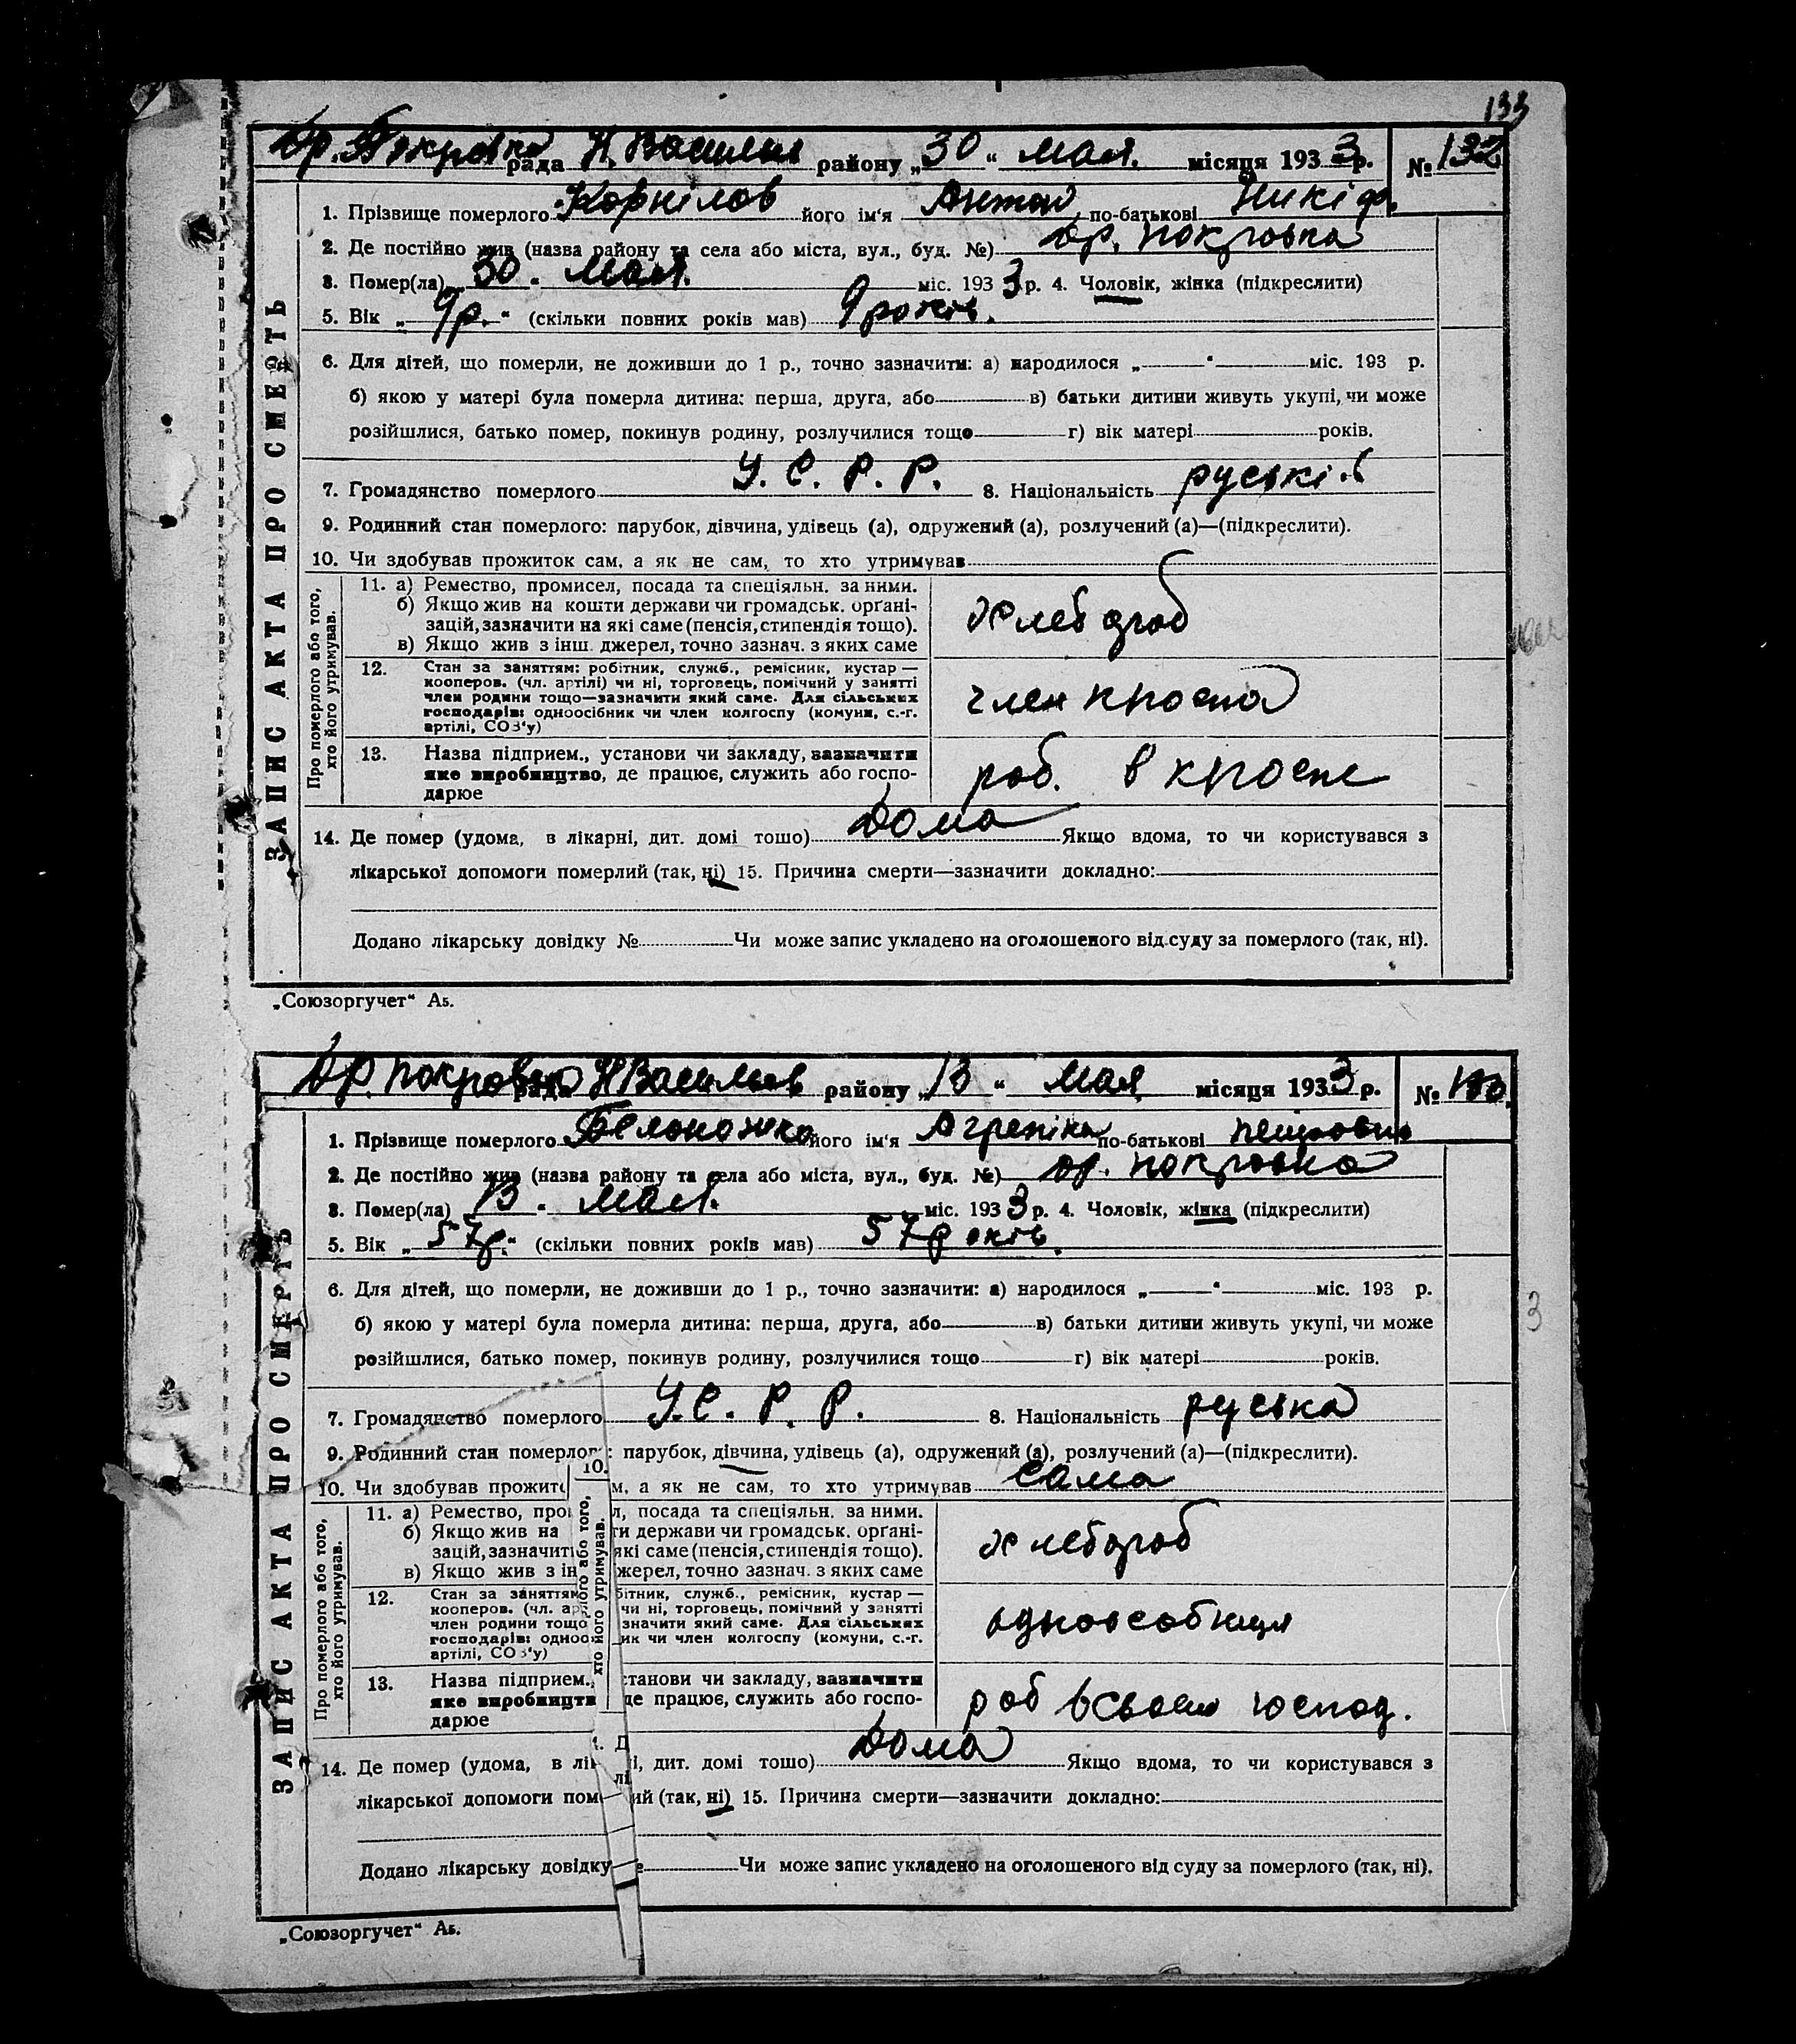 133
Др. Покровка рада Н. Васильев району „30“ мая. місяця 1933 р. № 132
1. Прізвище померлого Корнілов його ім‘я Антон по-батькові Никіф.
2. Де постійно жив (назва району та села або міста, вул., буд. №) др. Покровка
3. Помер(ла) 30. мая. міс. 1933 р. 4. Чоловік, жінка (підкреслити)
5. Вік „9р.“ (скільки повних років мав) 9 років.
6. Для дітей, що померли, не доживши до 1 р., точно зазначити: а) народилося „ “ міс. 193 р.
б) якою у матері була померла дитина: перша, друга, або в) батьки дитини живуть укупі, чи може
розійшлися, батько помер, покинув родину, розлучилися тощо г) вік матері років.
7. Громадянство померлого У. С. Р. Р. 8. Національність руські
9. Родинний стан померлого: парубок, дівчина, удівець (а), одружений (а), розлучений (а)—(підкреслити).
10. Чи здобував прожиток сам, а як не сам, то хто утримував
ЗАПИС АКТА ПРО СМЕРТЬ
Про померлого або того,
хто його утримував.
11. а) Ремество, промисел, посада та спеціяльн. за ними.
б) Якщо жив на кошти держави чи громадськ. орґані-
зацій, зазначити на які саме (пенсія, стипендія тощо).
в) Якщо жив з інш. джерел, точно зазнач. з яких саме
хлебороб
12. Стан за заняттям: робітник, служб., ремісник, кустар —
кооперов. (чл. артілі) чи ні, торговець, помічний у занятті
член родини тощо—зазначити який саме. Для сільських
господарів: одноосібник чи член колгоспу (комуни, с.-г.
артілі, СОЗ‘у)
член
13. Назва підприєм., установи чи закладу, зазначити
яке виробництво, де працює, служить або госпо-
дарює
роб. в
14. Де помер (удома, в лікарні, дит. домі тощо) Дома Якщо вдома, то чи користувався з
лікарської допомоги померлий (так, ні) 15. Причина смерти—зазначити докладно:
Додано лікарську довідку № Чи може запис укладено на оголошеного від суду за померлого (так, ні).
„Союзоргучет“ А5.
Др. Покровка рада Н Васильев району „13“ мая місяця 1933 р. №
1. Прізвище померлого Белоножко його ім‘я Агрепіна по-батькові
2. Де постійно жив (назва району та села або міста, вул., буд. №) др. Покровка
3. Помер(ла) 13. мая. міс. 1933 р. 4. Чоловік, жінка (підкреслити)
5. Вік „57р.“ (скільки повних років мав) 57 років.
6. Для дітей, що померли, не доживши до 1 р., точно зазначити: а) народилося „ “ міс. 193 р.
б) якою у матері була померла дитина: перша, друга, або в) батьки дитини живуть укупі, чи може
розійшлися, батько помер, покинув родину, розлучилися тощо г) вік матері років.
7. Громадянство померлого У. С. Р. Р. 8. Національність руська
9. Родинний стан померлог : парубок, дівчина, удівець (а), одружений (а), розлучений (а)—(підкреслити).
10.
10. Чи здобував прожит м, а як не сам, то хто утримував сама
ЗАПИС АКТА ПРО СМЕРТЬ
Про померлого або того,
хто його утримував.
11. а) Ремество, про л, посада та спеціяльн. за ними.
б) Якщо жив на ти держави чи громадськ. орґані-
зацій, зазначит які саме (пенсія, стипендія тощо).
в) Якщо жив з ін жерел, точно зазнач. з яких саме
хлебороб
12. Стан за заняттям бітник, служб., ремісник, кустар —
кооперов. (чл. ар чи ні, торговець, помічний у занятті
член родини тощо значити який саме. Для сільських
господарів: одноо ик чи член колгоспу (комуни, с.-г.
артілі, СОЗ‘у)
одноособниця
13. Назва підприєм., станови чи закладу, зазначити
яке виробництв де працює, служить або госпо-
дарює
роб в своем господ.
14. Де помер (удома, в лік і, дит. домі тощо) Дома Якщо вдома, то чи користувався з
лікарської допомоги пом ий (так, ні) 15. Причина смерти—зазначити докладно:
Додано лікарську довідку Чи може запис укладено на оголошеного від суду за померлого (так, ні).
„Союзоргучет“ А5.
3